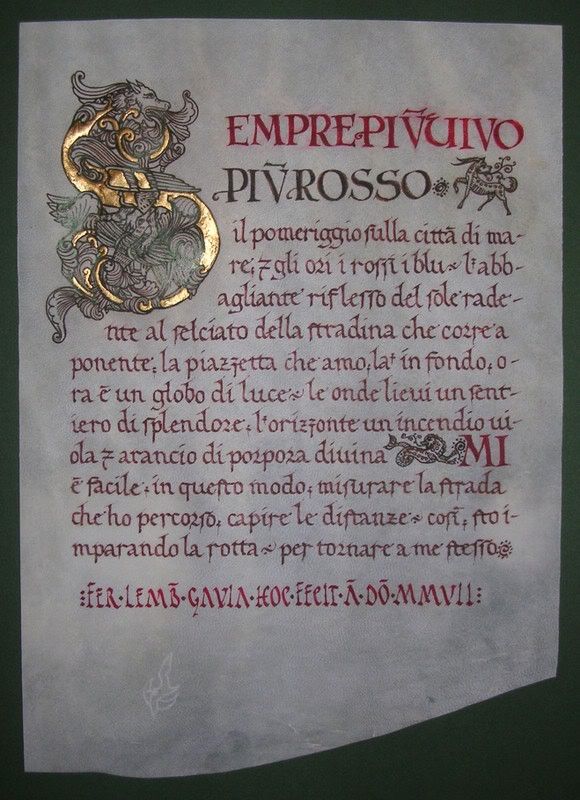 SEMPRE PIV̄ VIVO
PIV̄ ROSSO
il pomeriggio sulla città di ma-
re; ⁊ gli ori i rossi i blu ~ l'abb-
agliante riflesso del sole rade-
nte al selciato della stradina che corre a
ponente; la piazzetta che amo, là in fondo, o-
ra è un globo di luce ~ le onde lievi un sent-
iero di splendore, l'orizzonte un incendio vi-
ola ⁊ arancio di porpora divina MI
è facile, in questo modo, misurare la strada
che ho percorso, capire le distanze ~ così, sto i-
mparando la rotta ~ per tornare a me stesso
:FER·LEMB̄·GAVIA·HOC·FECIT·Ā·DŌ·MMVII: